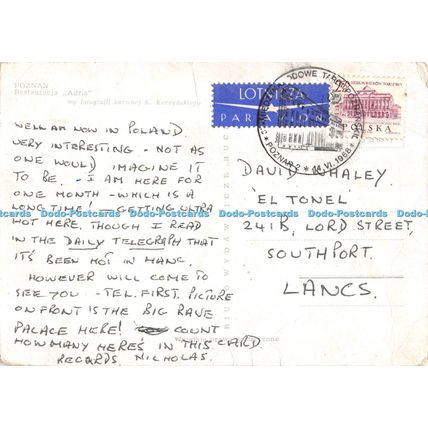 POZNAŃ
Restauracja „Adria"
wg fotografii barwnej K. Kaczyńskiego
LOTNICZA
PAR AVION
POZNAŃ 2
POLSKA
WELL AM NOW IN POLAND.
VERY INTERESTING - NOT AS
ONE WOULD IMAGINE IT
TO BE. - I AM HERE FOR
ONE MONTH - WHICH IS A
LONG TIME! - GETTING ULTRA
HOT HERE. THOUGH I READ
IN THE DAILY TELEGRAPH THAT
IT'S BEEN HOT IN MANC.
HOWEVER WILL COME TO
SEE YOU - TEL. FIRST. PICTURE
ON FRONT IS THE BIG RAVE
PALACE HERE! COUNT
HOW MANY HERE'S IN THIS CARD.
REGARDS, NICHOLAS.
DAVID WHALEY
'EL TONEL'
241B, LORD STREET,
SOUTHPORT.
LANCS.
Dodo-Postcards Dodo-Postcards Dodo-Postcards Dodo-Postcards Dodo-Postcards